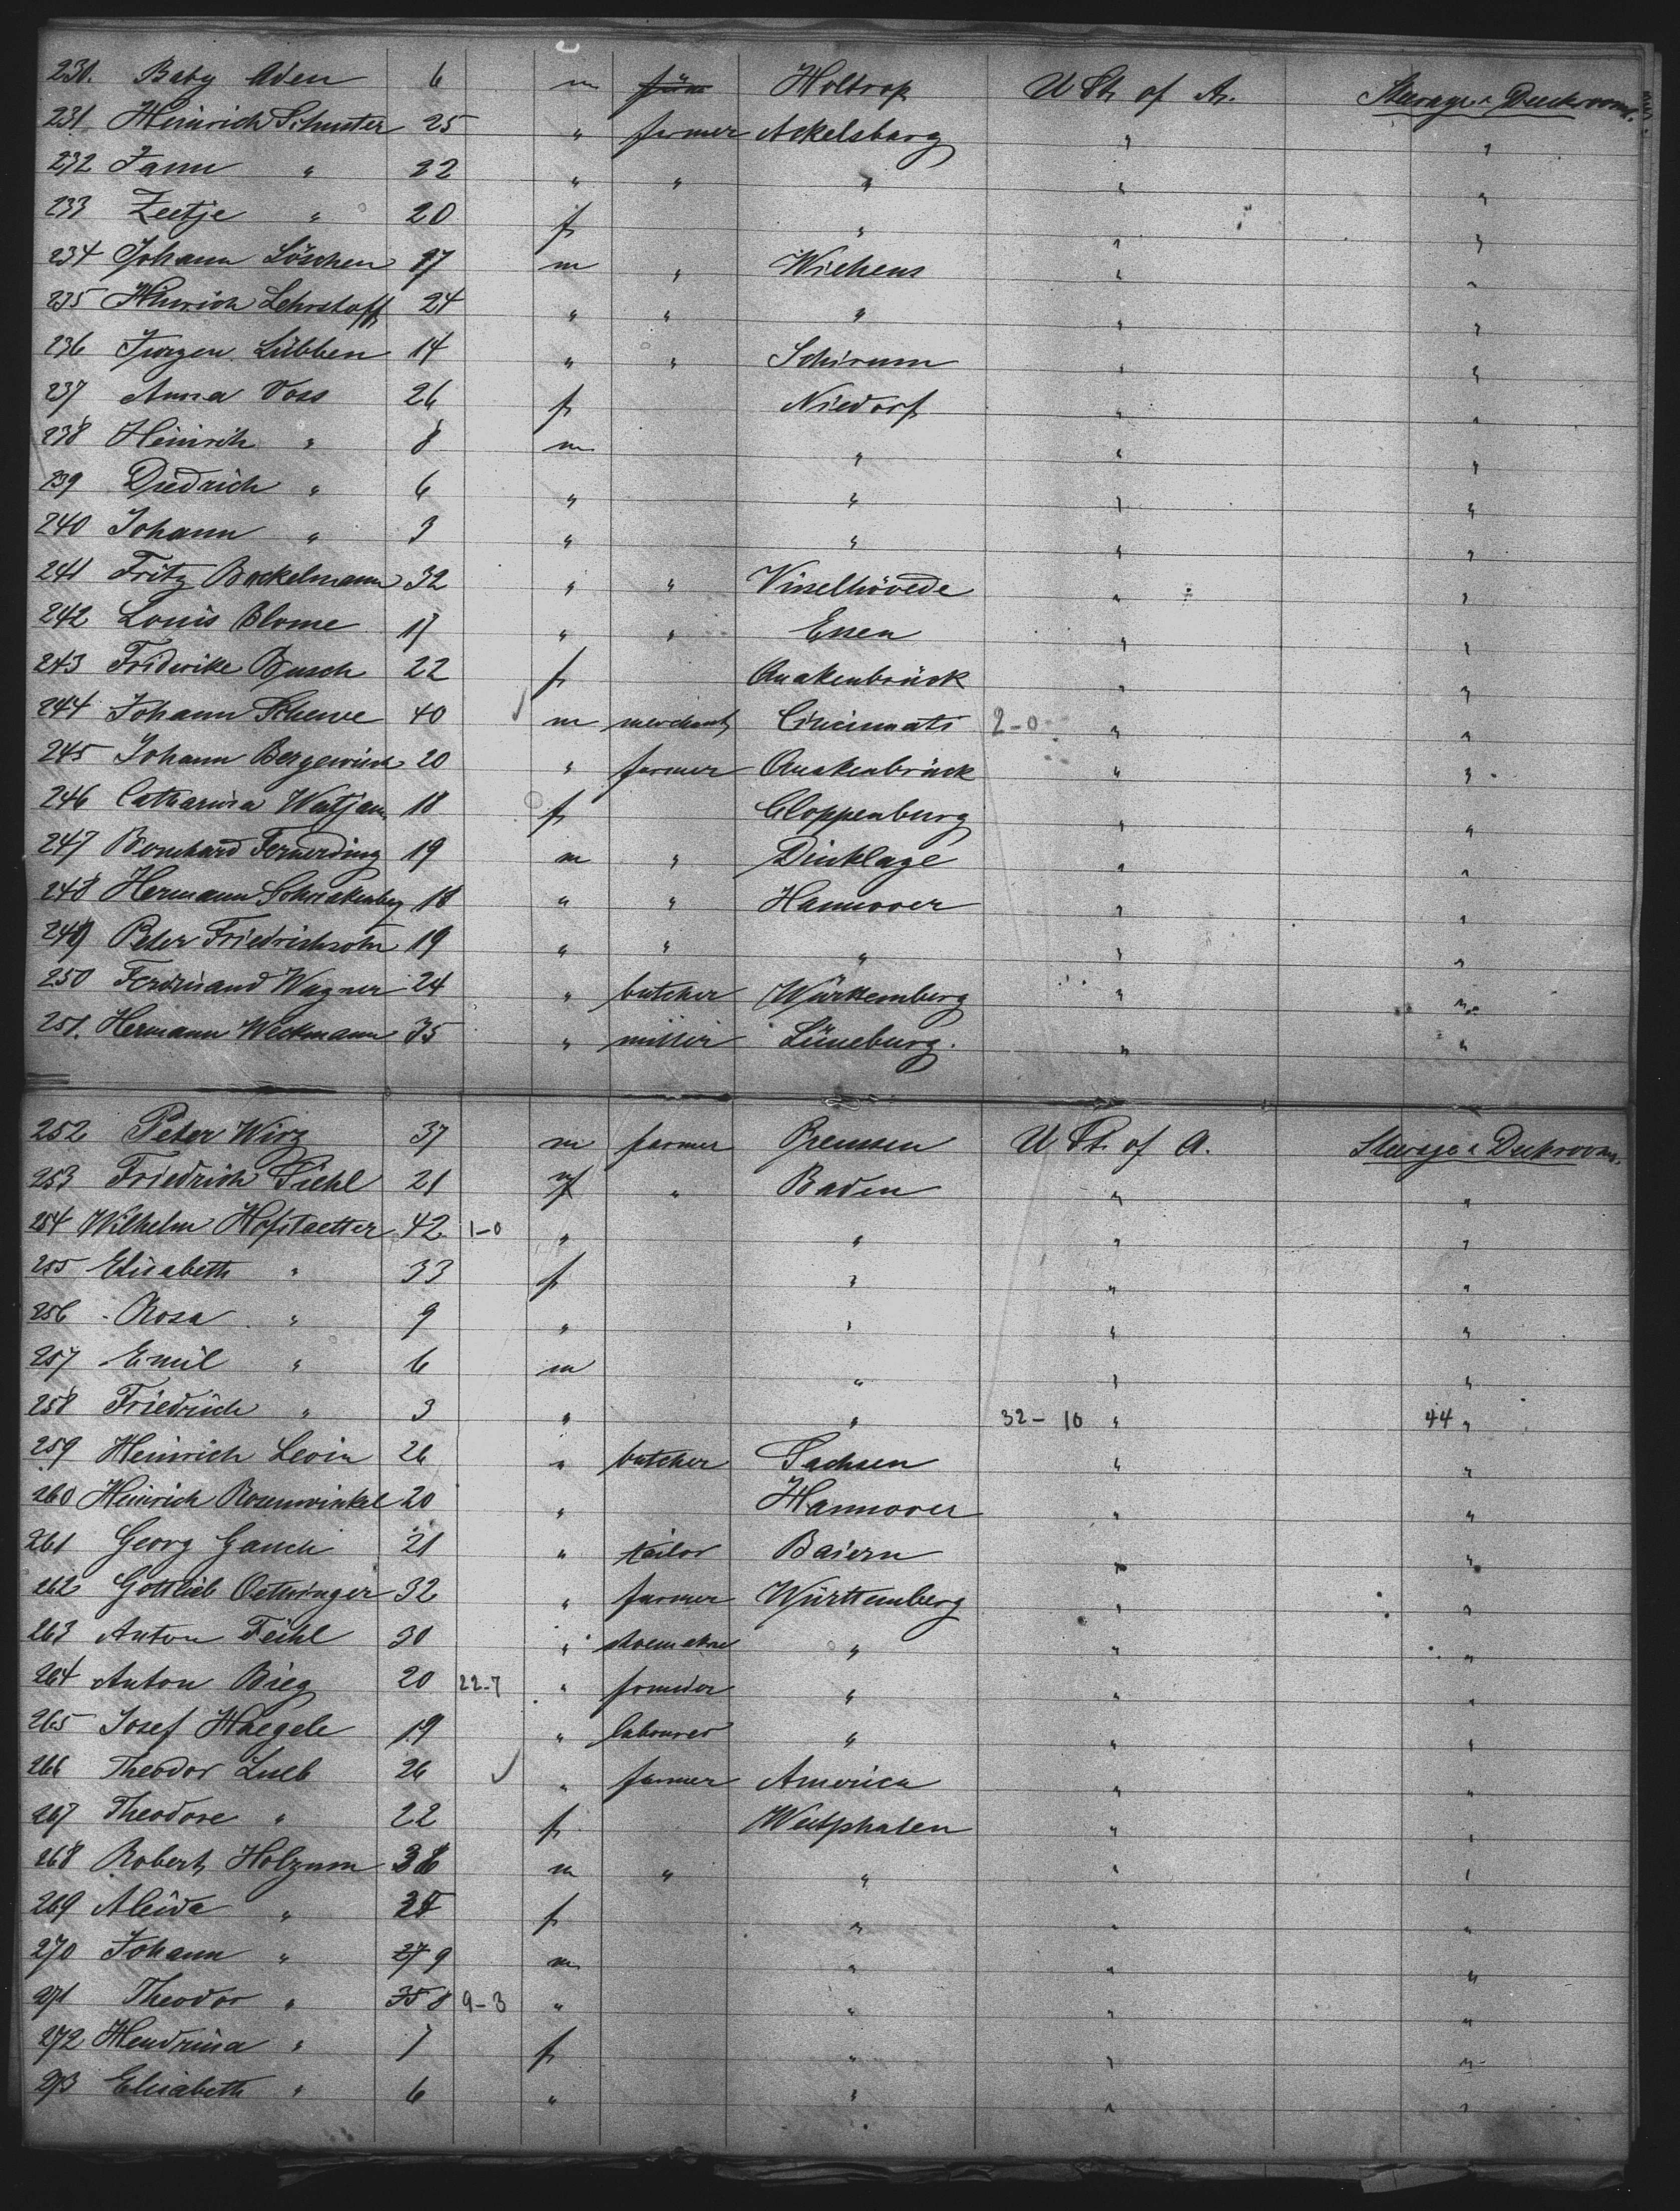 230. Baby Aden 6 m Holtrop U St. of A. Steerage & Deckrooms.
231 Heinrich Schuster 25 " farmer Ackelsbarg " "
232 Jann " 22 " " " " "
233 Zeetje " 20 f " " "
234 Johann Löschen 17 m " Wiehens " "
235 Hinrich Lehrstoff 24 " " " " "
236 Jurgen Lübben 14 " " Schirum " "
237 Anna Voss 26 f Niedorf " "
238 Heinrich " 8 m " " "
239 Diedrich " 6 " " " "
240 Johann " 3 " " " "
241 Fritz Bockelmann 32 " " Visselhövede " "
242 Louis Blome 17 " " Essen " "
243 Friderike Busch 22 f Quakenbrück " "
244 Johann Schewe 40 m merchant Cincinnati 2-0 " "
245 Johann Bergewisch 20 " farmer Quakenbrück " "
246 Catharina Wertjam 18 f Cloppenburg " "
247 Bernhard Fernerding 19 m " Dinklage " "
248 Hermann Schnakenberg 18 " " Hannover " "
249 Peter Friedrichsohn 19 " " " " "
250 Ferdinand Wagner 24 " butcher Württemberg " "
251. Hermann Weckmann 35 " miller Lüneburg. " "
252 Peter Wirz 37 m farmer Preussen U St. of A. Steerage & Deckrooms.
253 Friedrich Siehl 21 m " Baden " "
254 Wilhelm Hofstaetter 42 1-0 " " " "
255 Elisabeth " 33 f " " "
256 Rosa " 9 " " " "
257 Emil " 6 m " " "
258 Friedrich " 3 " " 32-10 " 44 "
259 Heinrich Levin 26 " butcher Sachsen " "
260 Heinrich Rosenwinkel 20 " Hannover " "
261 Georg Gauch 21 " tailor Baiern " "
262 Gottlieb Oettinger 32 " farmer Württemberg " "
263 Anton Feihl 30 " shoemaker " " "
264 Anton Bieg 20 22-7 " " " "
265 Josef Haegele 19 " labourer " " "
266 Theodor Lueb 26 " farmer America " "
267 Theodore " 22 f Westphalen " "
268 Robert Holzum 38 m " " " "
269 Aleida " 34 f " " "
270 Johann " 27 9 m " " "
271 Theodor " 35 8 9-3 " " " "
272 Hendrina " 7 f " " "
273 Elisabeth " 6 " " " "